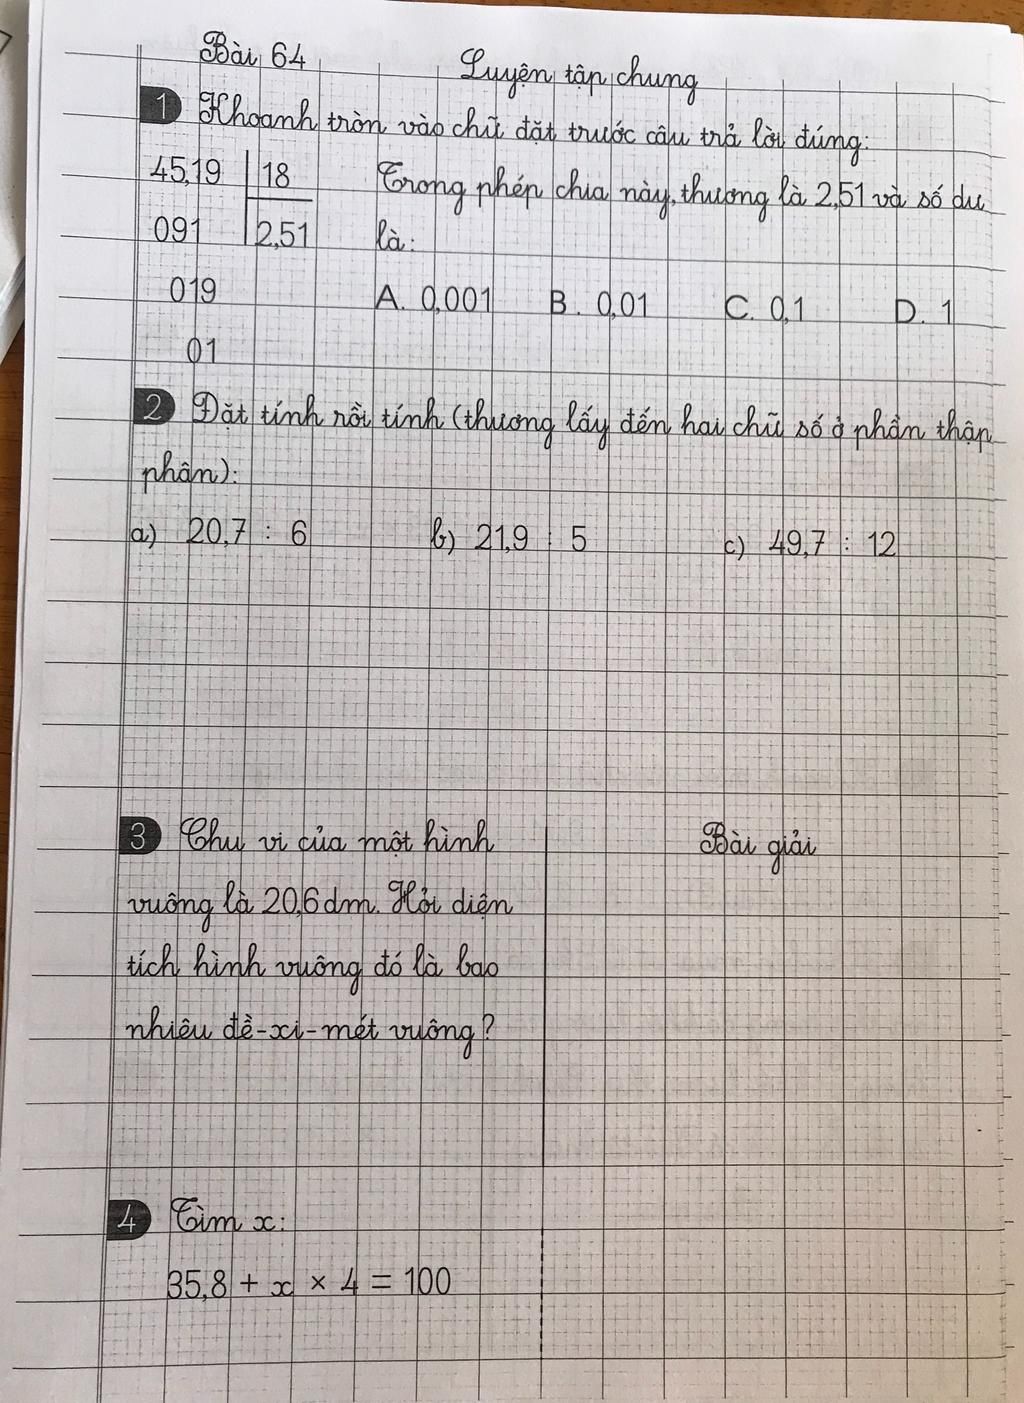 Bài 64 Luyện tập chung
1 Khoanh tròn vào chữ đặt trước câu trả lời đúng:
45,19 18 Trong phép chia này, thương là 2,51 và số dư
091 2,51 là:
019 A. 0,001 B. 0,01 C. 0,1 D. 1
01
2 Đặt tính rồi tính (thương lấy đến hai chữ số ở phần thập
phân):
a) 20,7 : 6 b) 21,9 : 5 c) 49,7 : 12
3 Chu vi của một hình
vuông là 20,6 dm. Hỏi diện
tích hình vuông đó là bao
nhiêu đề-xi-mét vuông?
Bài giải
4 Tìm x:
35,8 + x × 4 = 100